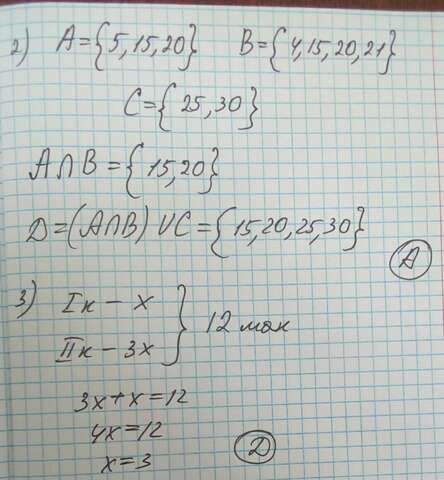 2) A={5,15,20} B={4,15,20,21}
C={25,30}
A∩B={15,20}
D=(A∩B)UC={15,20,25,30}
A
3) Iк - x
IIк - 3x } 12 мак
3x+x=12
4x=12
x=3
D